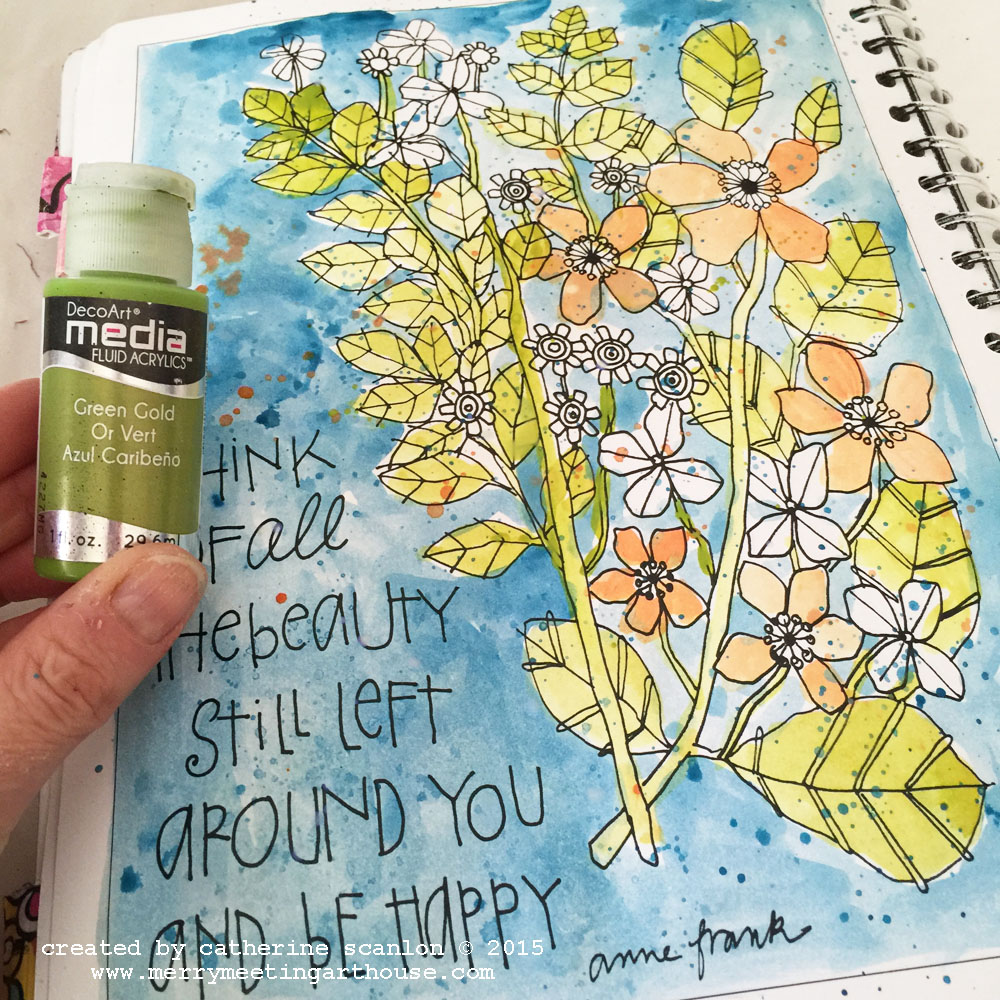 DecoArt®
media
FLUID ACRYLICS™
Green Gold
Or Vert
Azul Caribeño
1 fl. oz. 29.6ml
HINK
OF all
THE beAUTY
STILL LEFT
AROUND YOU
AND bE HAPPY
anne frank
created by catherine scanlon © 2015
www.merrymeetingarthouse.com